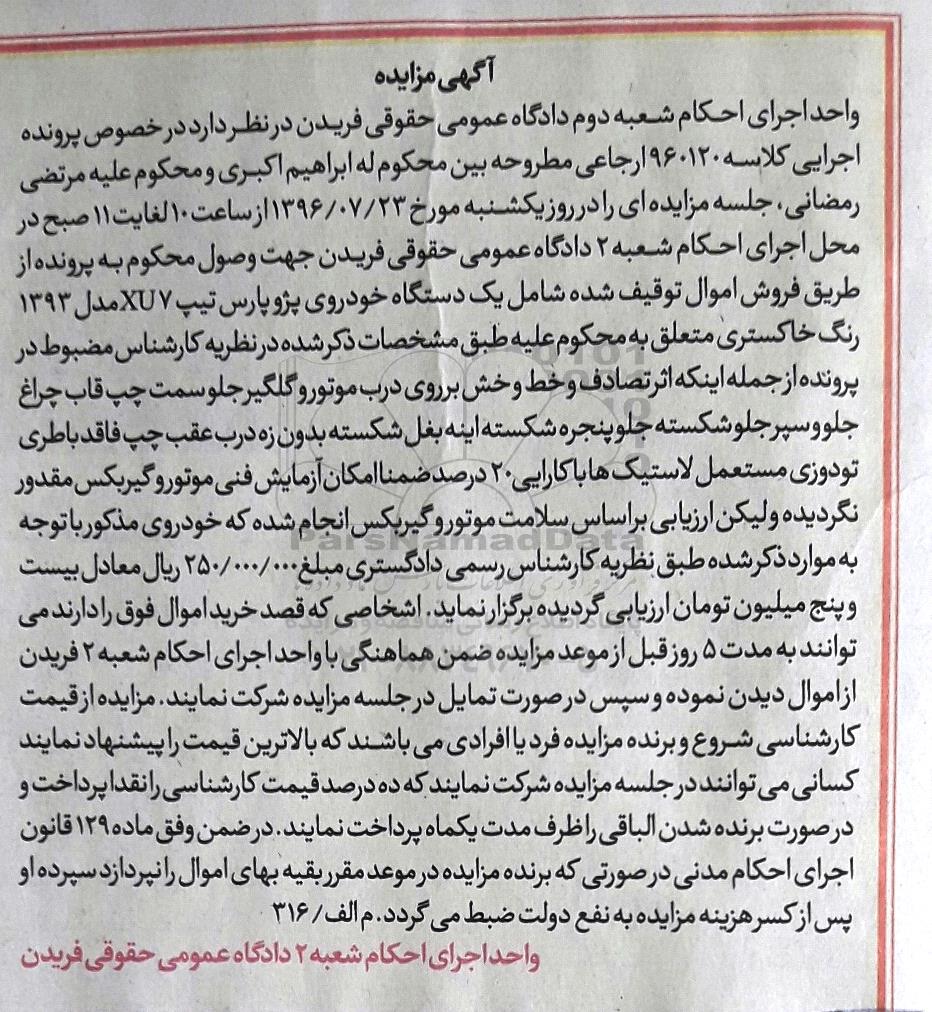 آگهی مزایده
واحد اجرای احکام شعبه دوم دادگاه عمومی حقوقی فریدن در نظر دارد در خصوص پرونده
اجرایی کلاسه ۹۶۰۱۲۰ ارجاعی مطروحه بین محکوم له ابراهیم اکبری و محکوم علیه مرتضی
رمضانی، جلسه مزایده ای را در روز یکشنبه مورخ ۱۳۹۶/۰۷/۲۳ از ساعت ۱۰ لغایت ۱۱ صبح در
محل اجرای احکام شعبه ۲ دادگاه عمومی حقوقی فریدن جهت وصول محکوم به پرونده از
طریق فروش اموال توقیف شده شامل یک دستگاه خودروی پژو پارس تیپ XU۷ مدل ۱۳۹۳
رنگ خاکستری متعلق به محکوم علیه طبق مشخصات ذکر شده در نظریه کارشناس مضبوط در
پرونده از جمله اینکه اثر تصادف و خط و خش بر روی درب موتور و گلگیر جلو سمت چپ قاب چراغ
جلو و سپر جلو شکسته جلو پنجره شکسته اینه بغل شکسته بدون زه درب عقب چپ فاقد باطری
تودوزی مستعمل لاستیک ها با کارایی ۲۰ درصد ضمنا امکان آزمایش فنی موتور و گیربکس مقدور
نگردیده ولیکن ارزیابی بر اساس سلامت موتور و گیربکس انجام شده که خودروی مذکور با توجه
به موارد ذکر شده طبق نظریه کارشناس رسمی دادگستری مبلغ ۲۵۰/۰۰۰/۰۰۰ ریال معادل بیست
و پنج میلیون تومان ارزیابی گردیده برگزار نماید. اشخاصی که قصد خرید اموال فوق را دارند می
توانند به مدت ۵ روز قبل از موعد مزایده ضمن هماهنگی با واحد اجرای احکام شعبه ۲ فریدن
از اموال دیدن نموده و سپس در صورت تمایل در جلسه مزایده شرکت نمایند. مزایده از قیمت
کارشناسی شروع و برنده مزایده فرد یا افرادی می باشند که بالاترین قیمت را پیشنهاد نمایند
کسانی می توانند در جلسه مزایده شرکت نمایند که ده درصد قیمت کارشناسی را نقدا پرداخت و
در صورت برنده شدن الباقی را ظرف مدت یکماه پرداخت نمایند. در ضمن وفق ماده ۱۲۹ قانون
اجرای احکام مدنی در صورتی که برنده مزایده در موعد مقرر بقیه بهای اموال را نپردازد سپرده او
پس از کسر هزینه مزایده به نفع دولت ضبط می گردد. م الف/ ۳۱۶
واحد اجرای احکام شعبه ۲ دادگاه عمومی حقوقی فریدن
ParsNamadData